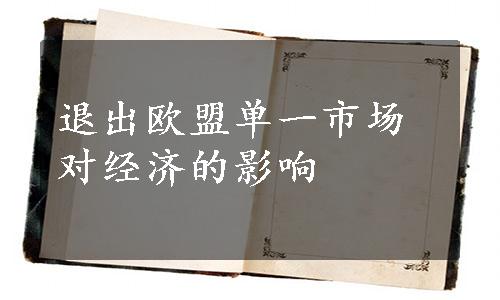 退出欧盟单一市场
对经济的影响